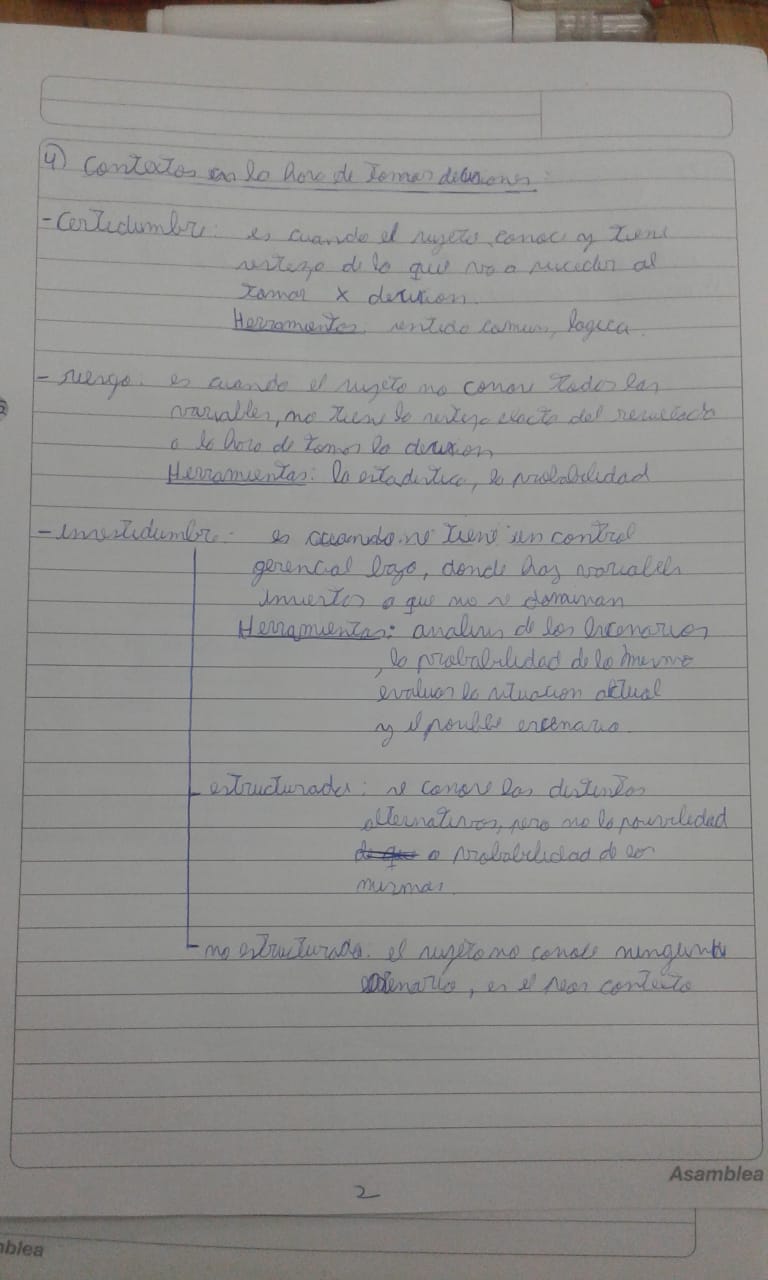 4) Contextos en la hora de tomar decisiones:
- Certidumbre: es cuando el sujeto conoce y tiene
certeza de lo que va a suceder al
tomar X decision.
Herramientas: sentido comun, logica.
- riesgo: es cuando el sujeto no conoce todas las
variables, no tiene la certeza exacta del resultado
a la hora de tomar la decision
Herramientas: la estadistica, la probabilidad
- incertidumbre: es cuando se tiene un control
gerencial bajo, donde hay variables
inciertas o que no se dominan
Herramientas: analisis de los escenarios
, la probabilidad de lo mismo
evaluar la situacion actual
y el posible escenario.
estructurada: se conoce las distintas
alternativas, pero no la posivilidad
o probabilidad de las
mismas.
no estructurada: el sujeto no conoce ningun
escenario, es el peor contexto
Asamblea
2
mblea